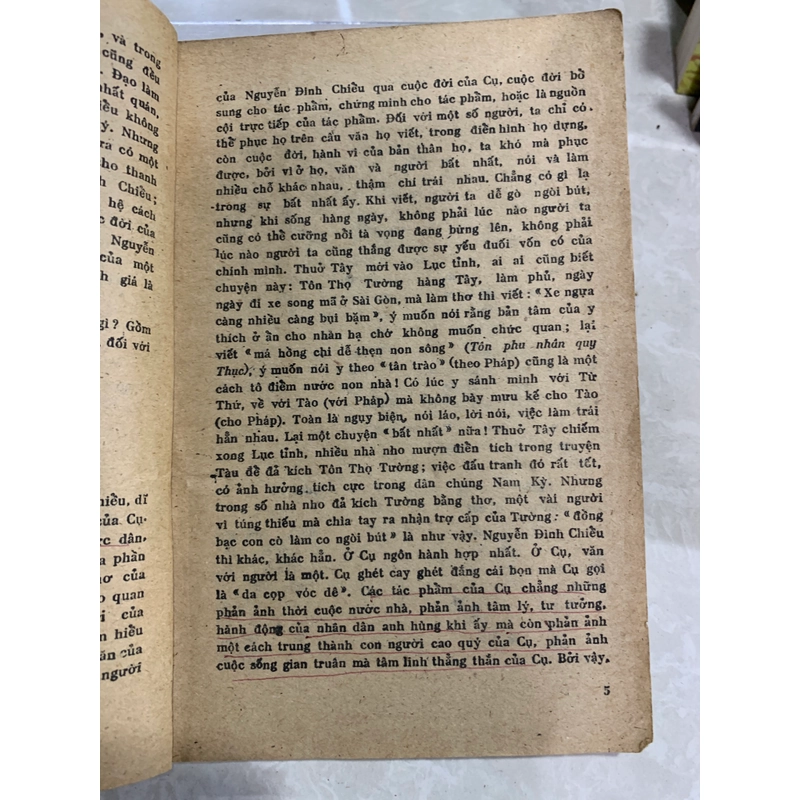 và trong
cũng đều
Đạo làm
nhất quán,
không
Nhưng
có một
cho thanh
Chiều;
hệ cách
đời của
Nguyễn
của một
giá là
gì? Gồm
đối với
hiều, dĩ
của Cụ.
dân,
phần
của
quan
của
hiều
của
người
của Nguyễn Đình Chiều qua cuộc đời của Cụ, cuộc đời bổ
sung cho tác phẩm, chứng minh cho tác phẩm, hoặc là nguồn
cội trực tiếp của tác phẩm. Đối với một số người, ta chỉ có
thể phục họ trên cấu văn họ viết, trong điển hình họ dựng,
còn cuộc đời, hành vi của bản thân họ, ta khó mà phục
được, bởi vì ở họ, văn và người bất nhất, nói và làm
nhiều chỗ khác nhau, thậm chí trái nhau. Chẳng có gì lạ
trong sự bất nhất ấy. Khi viết, người ta dễ gò ngòi bút,
nhưng khi sống hàng ngày, không phải lúc nào người ta
cũng có thể cưỡng nồi tà vọng đang bừng lên, không phải
lúc nào người ta cũng thắng được sự yếu đuối vốn có của
chính mình. Thuở Tây mới vào Lục tỉnh, ai ai cũng biết
chuyện này: Tôn Thọ Tường hàng Tây, làm phủ, ngày
ngày đi xe song mã ở Sài Gòn, mà làm thơ thì viết: «Xe ngựa
càng nhiều càng bụi bặm», ý muốn nói rằng bản tâm của y
thích ở ẩn cho nhàn hạ chớ không muốn chức quan; lại
viết «má hồng chi dễ thẹn non sông» (Tôn phu nhân quy
Thục), ý muốn nói y theo «tân trào» (theo Pháp) cũng là một
cách tô điểm nước non nhà! Có lúc y sánh mình với Từ
Thứ, về với Tào (với Pháp) mà không bày mưu kế cho Tào
(cho Pháp). Toàn là ngụy biện, nói láo, lời nói, việc làm trái
hẳn nhau. Lại một chuyện «bất nhất» nữa! Thuở Tây chiếm
xong Lục tỉnh, nhiều nhà nho mượn điển tích trong truyện
Tàu để đả kích Tôn Thọ Tường; việc đấu tranh đó rất tốt,
có ảnh hưởng tích cực trong dân chúng Nam Kỳ. Nhưng
trong số nhà nho đả kích Tường bằng thơ, một vài người
vì túng thiếu mà chìa tay ra nhận trợ cấp của Tường: «đồng
bạc con cò làm co ngòi bút» là như vậy. Nguyễn Đình Chiều
thì khác, khác hẳn. Ở Cụ ngôn hành hợp nhất. Ở Cụ, văn
với người là một. Cụ ghét cay ghét đắng cái bọn mà Cụ gọi
là «da cọp vóc dê». Các tác phẩm của Cụ chẳng những
phản ảnh thời cuộc nước nhà, phản ảnh tâm lý, tư tưởng,
hành động của nhân dân anh hùng khi ấy mà còn phản ảnh
một cách trung thành con người cao quý của Cụ, phản ảnh
cuộc sống gian truân mà tâm linh thẳng thắn của Cụ. Bởi vậy,
5